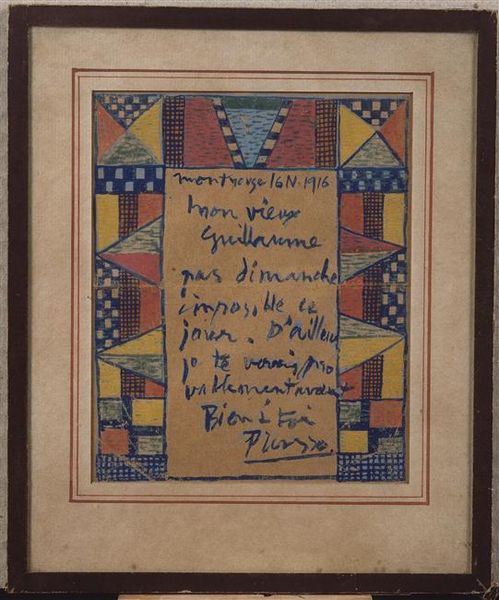 montrouge 16 N. 1916
mon vieux
Guillaume
pas dimanche
imposible ce
jour. D'ailleurs
je te verais pro
vablement avant
Bien à toi
Picasso.